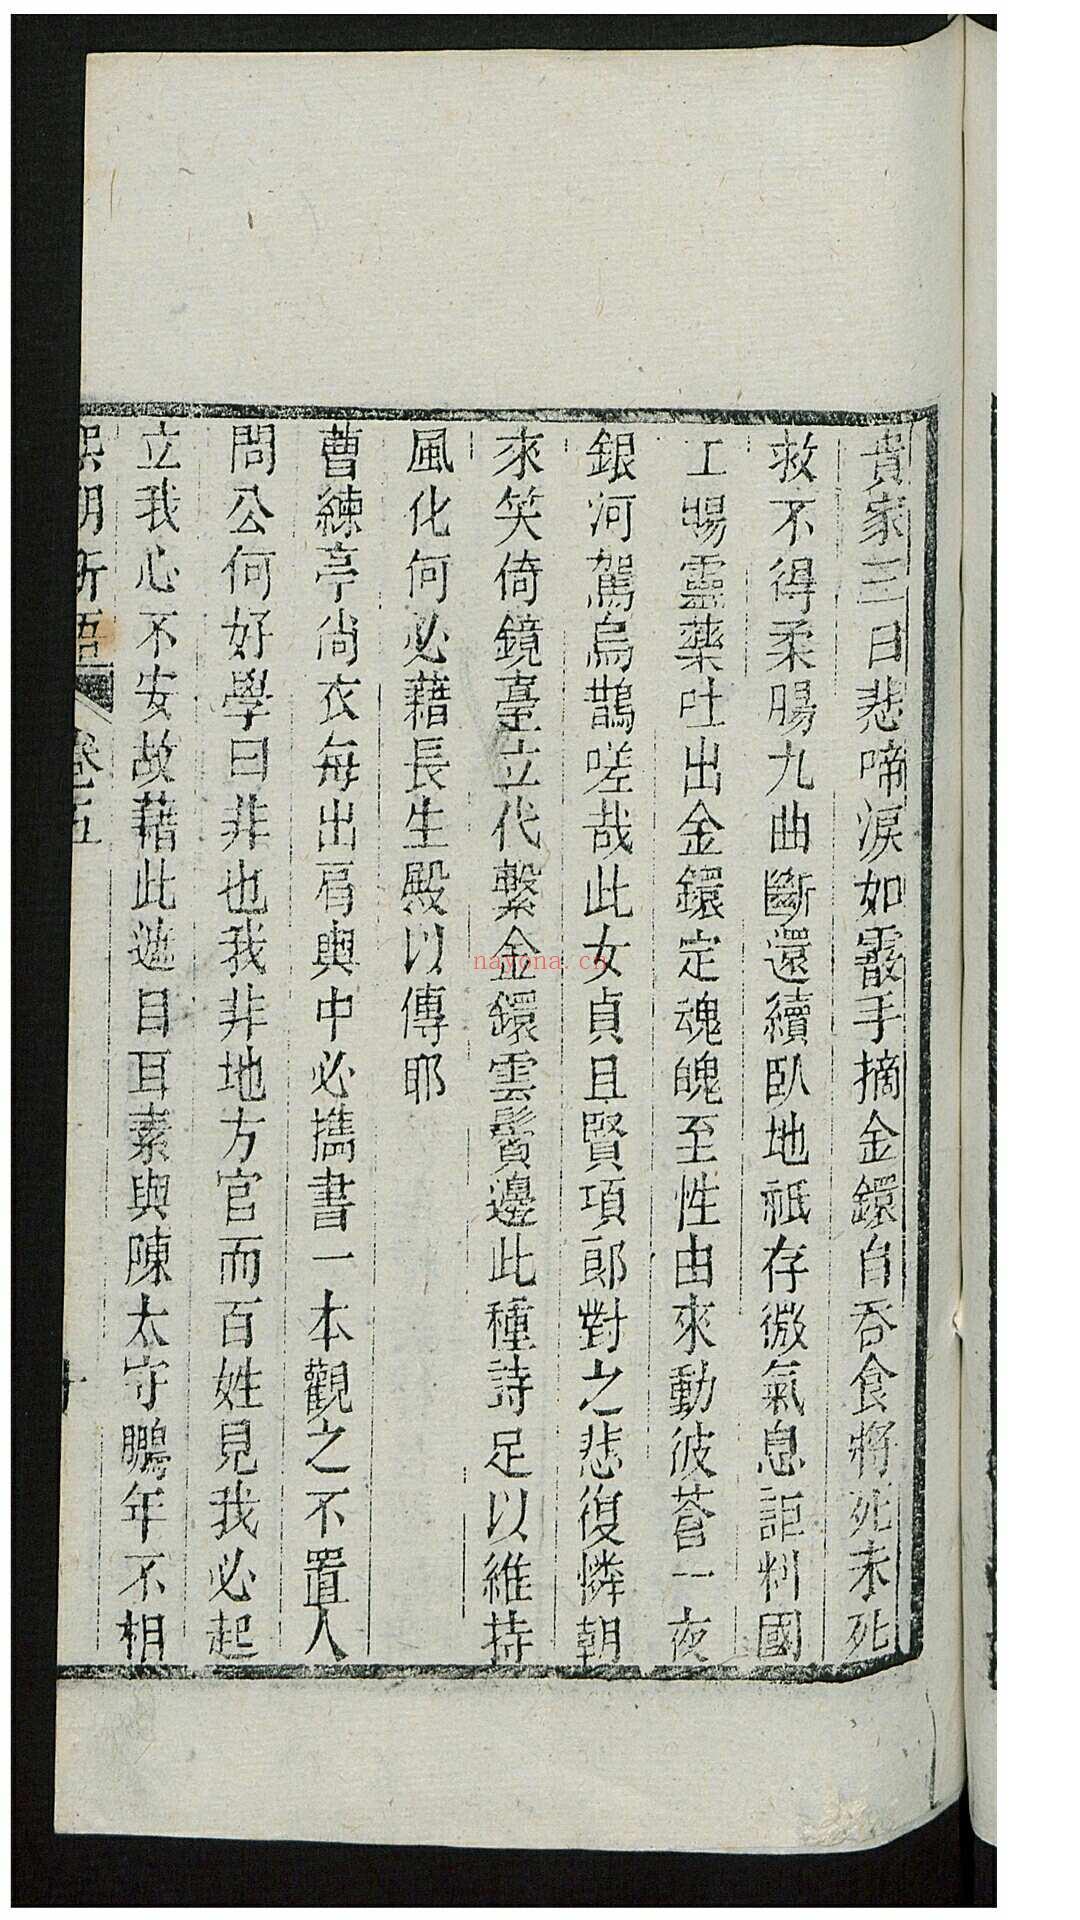 貴家三日悲啼淚如霰手摘金鐶自吞食將死未死
救不得柔腸九曲斷還續臥地祗存微氣息詎料國
工賜靈藥吐出金鐶定魂魄至性由來動彼蒼一夜
銀河駕烏鵲嗟哉此女貞且賢項郎對之悲復憐朝
來笑倚鏡臺立代繫金鐶雲鬢邊此種詩足以維持
風化何必藉長生殿以傳耶
曹練亭尚衣每出肩輿中必攜書一本觀之不置人
問公何好學曰非也我非地方官而百姓見我必起
立我心不安故藉此遮目耳素與陳太守鵬年不相
熙朝新語 卷五
nayona.cn